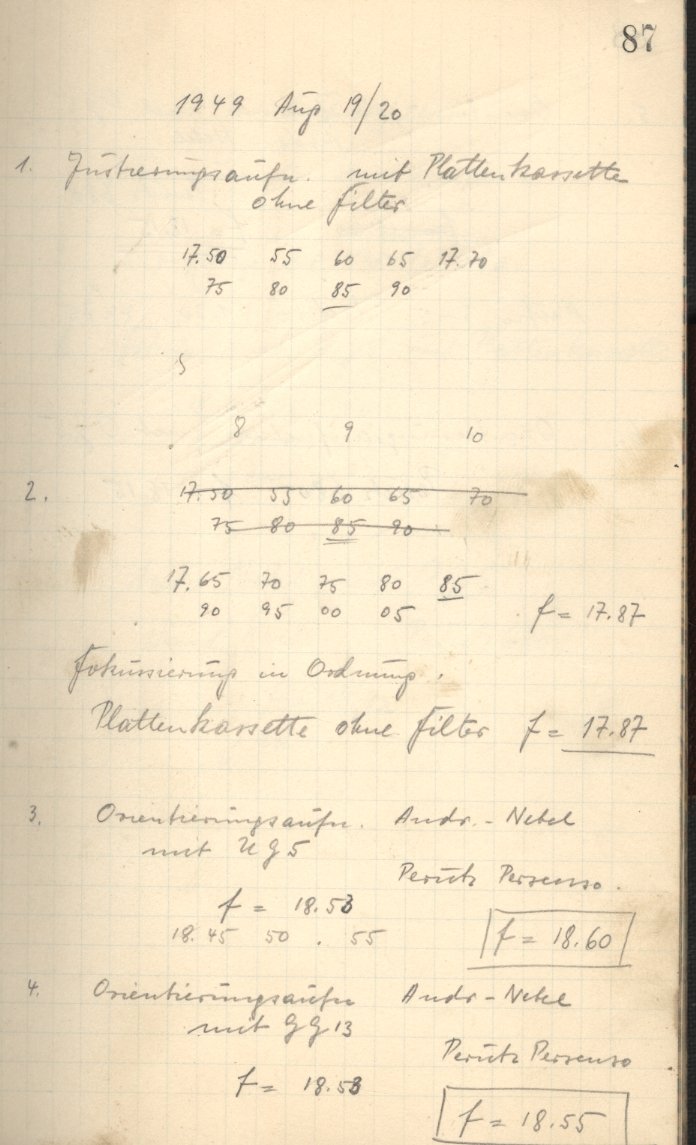 87
1949 Aug 19/20
1. Justierungsaufn. mit Plattenkassette
ohne Filter
17.50 55 60 65 17.70
75 80 85 90
8 9 10
2. 17.50 55 60 65 70
75 80 85 90
17.65 70 75 80 85
90 95 00 05 f = 17.87
Fokussierung in Ordnung.
Plattenkassette ohne Filter f = 17.87
3. Orientierungsaufn. Andr. - Nebel
mit UG5
Perutz Persenso.
f = 18.53
18.45 50 . 55 f = 18.60
4. Orientierungsaufn Andr - Nebel
mit GG13
Perutz Persenso
f = 18.53
f = 18.55